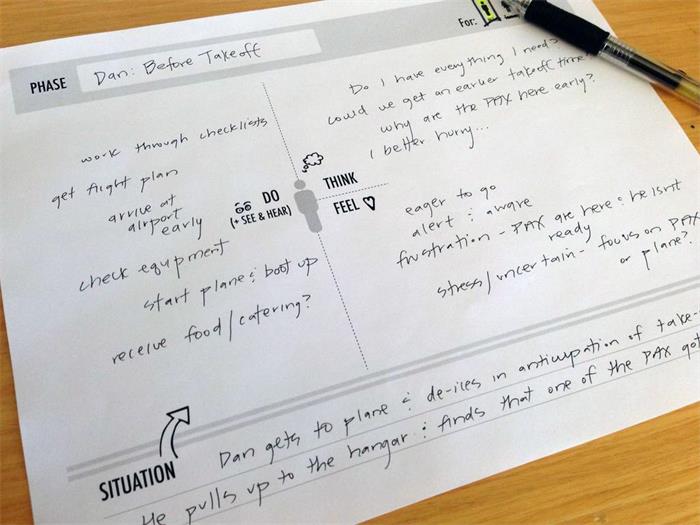 For:
PHASE Dan: Before Takeoff
work through checklists
get flight plan
arrive at
airport
early
check equpment
start plane & boot up
receive food/catering?
DO
(+ SEE & HEAR)
Do I have everything I need?
could we get an earlier takeoff time?
why are the PAX here early?
I better hurry...
THINK
FEEL
eager to go
alert & aware
frustration - PAX are here & he isnt
ready
stress/uncertain - focus on PAX
or plane?
SITUATION
Dan gets to plane & de-ices in anticipation of take-
He pulls up to the hangar & finds that one of the PAX got